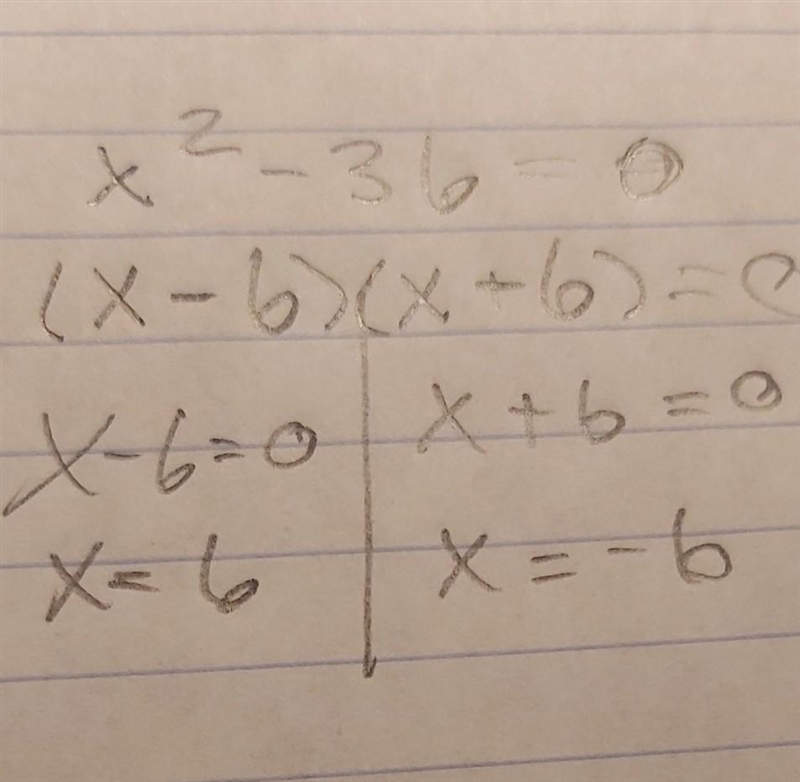 x² - 36 = 0
(x - 6)(x + 6) = 0
x - 6 = 0
x = 6
x + 6 = 0
x = -6